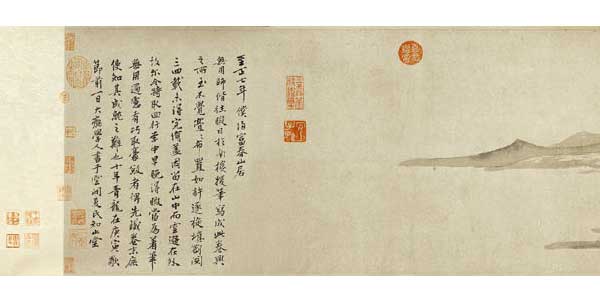 至正七年僕歸富春山居
無用師偕往暇日於南樓援筆寫成此卷興
之所至不覺亹亹布置如許逐旋填劄閱
三四載未得完備蓋因留在山中而雲遊在外
故爾今特取回行李中早晚得暇當為著筆
無用過慮有巧取豪敓者俾先識卷末庶
使知其成就之難也十年青龍在庚寅歜
節前一日大癡學人書于雲間夏氏知止堂